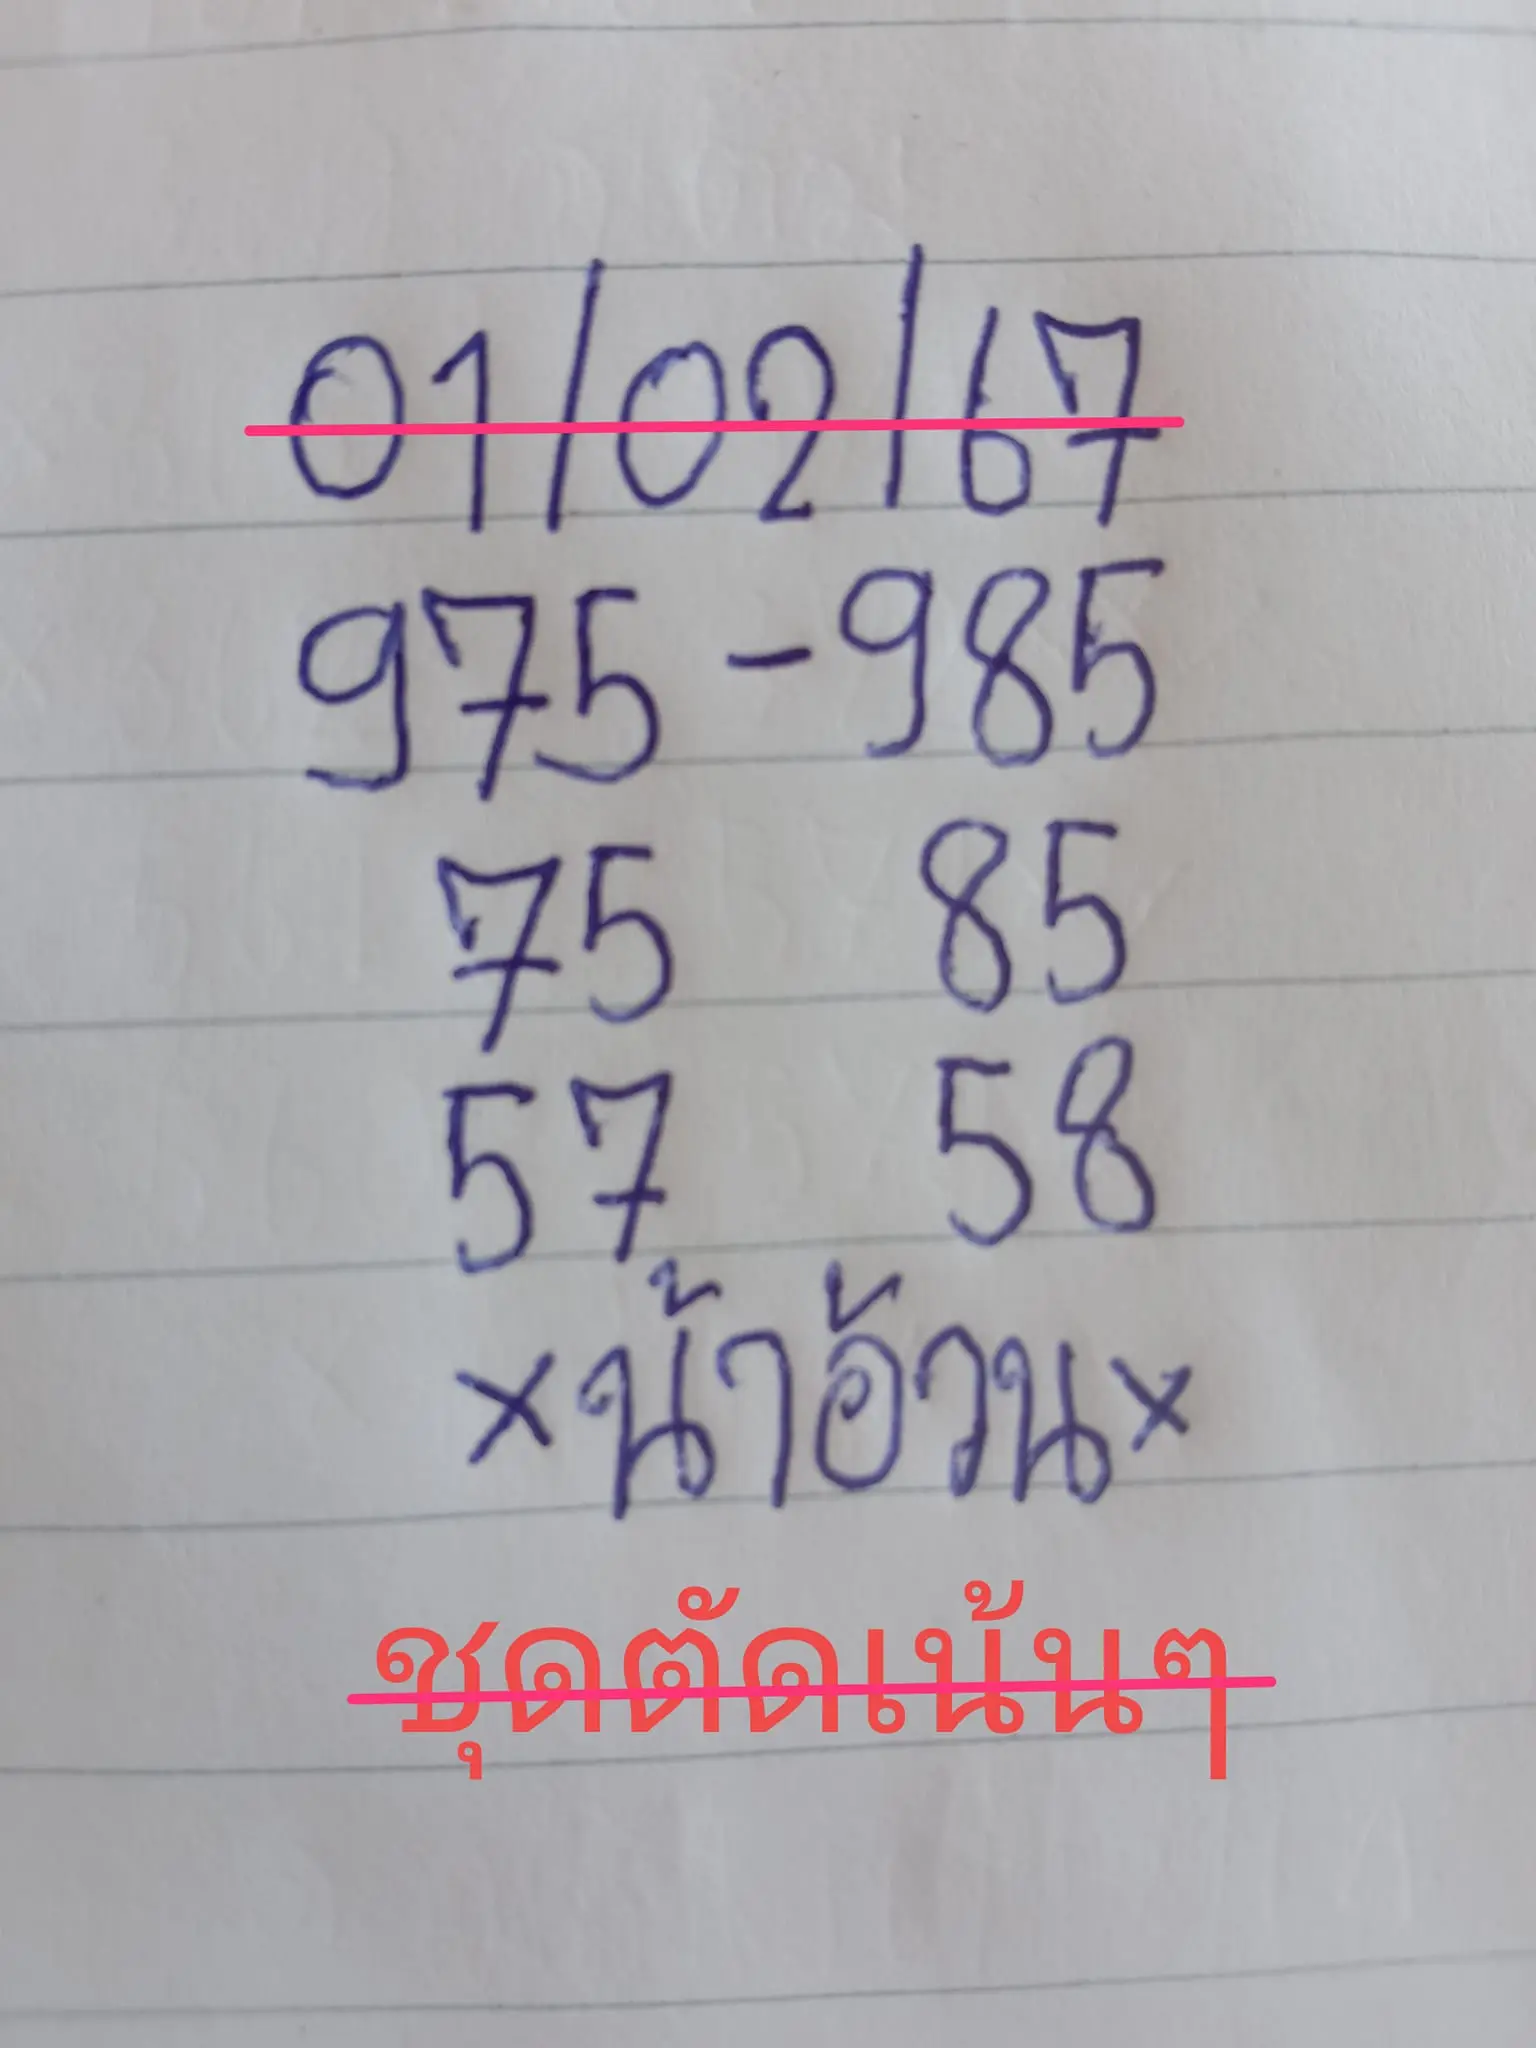 01/02/67
975-985
75 85
57 58
×น้าอ้วน×
ชุดตัดเน้นๆ